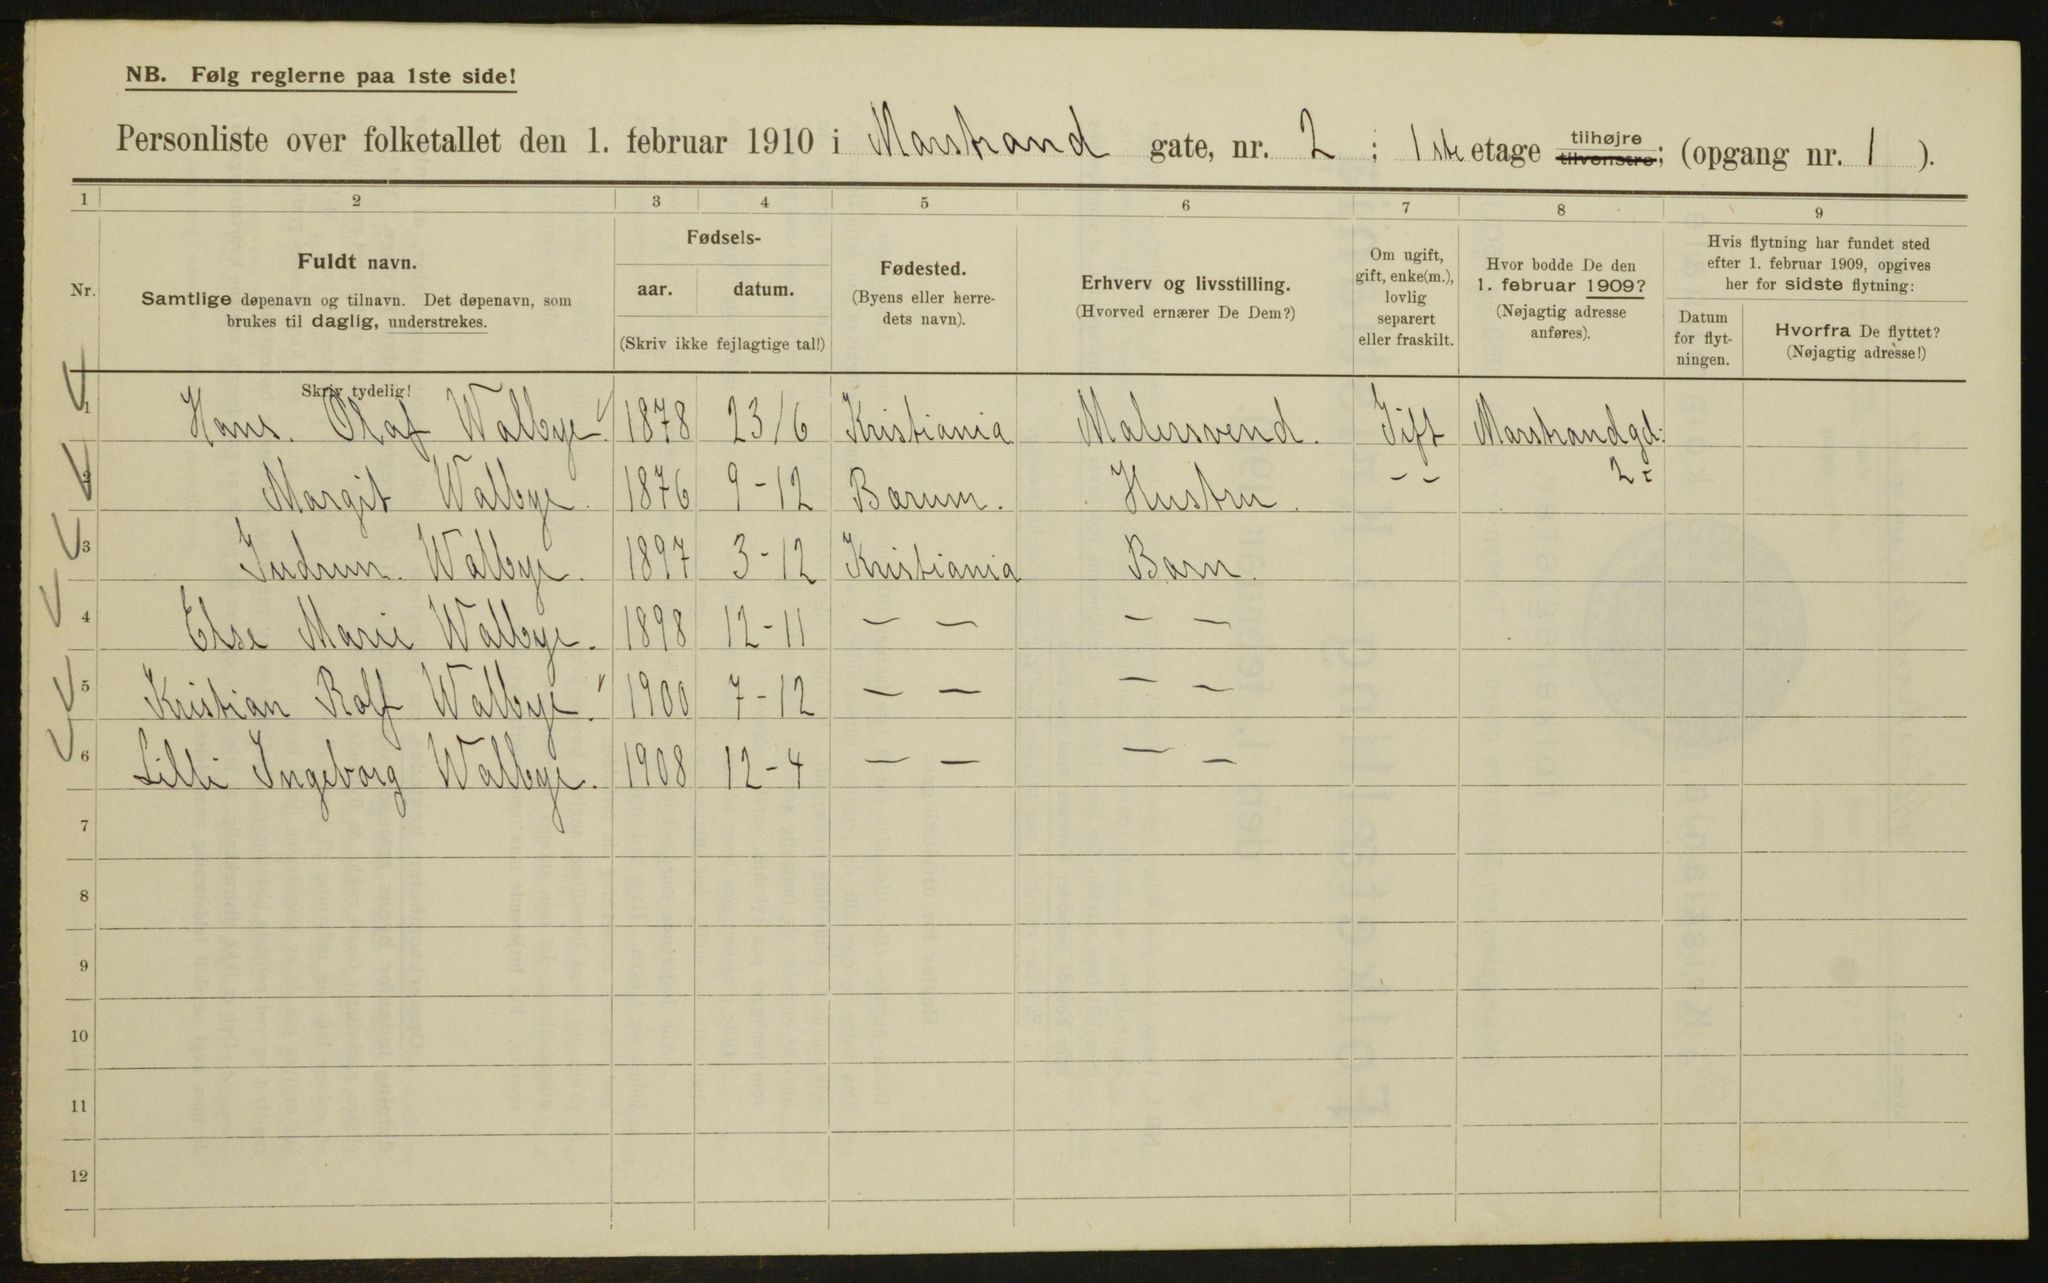 NB. Følg reglerne paa 1ste side!
Personliste over folketallet den 1. februar 1910 i Marstrand gate, nr. 2 ; 1ste etage tilhøjre tilvenstre; (opgang nr. 1 ).
1 2 3 4 5 6 7 8 9
Nr.
Fuldt navn.
Samtlige døpenavn og tilnavn. Det døpenavn, som
brukes til daglig, understrekes.
Skriv tydelig!
Fødsels-
aar. datum.
(Skriv ikke fejlagtige tal!)
Fødested.
(Byens eller herre-
dets navn).
Erhverv og livsstilling.
(Hvorved ernærer De Dem?)
Om ugift,
gift, enke(m.),
lovlig
separert
eller fraskilt.
Hvor bodde De den
1. februar 1909?
(Nøjagtig adresse
anføres).
Hvis flytning har fundet sted
efter 1. februar 1909, opgives
her for sidste flytning:
Datum
for flyt-
ningen.
Hvorfra De flyttet?
(Nøjagtig adresse!)
1 Hans. Olaf Walbye. 1878 23/6 Kristiania Malersvend. Gift Marstrandgd:
2 Margit Walbye. 1876 9-12 Barum. Hustru. - - 2-
3 Gudrun. Walbye. 1897 3-12 Kristiania Barn.
4 Else Marie Walbye. 1898 12-11 — — — —
5 Kristian Rolf Walbye. 1900 7-12 — — — —
6 Lilli Ingeborg Walbye. 1908 12-4 — — — —
7
8
9
10
11
12